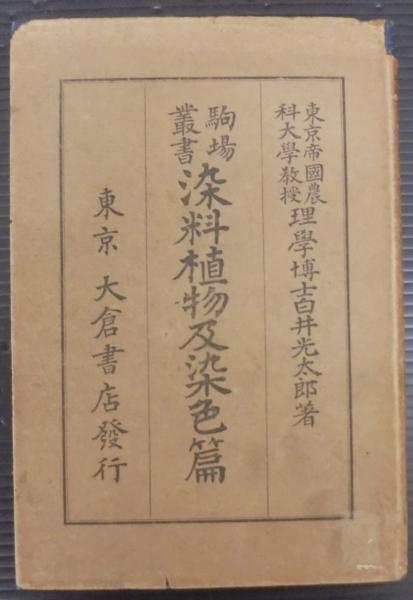 東京帝國農科大學教授 理學博士白井光太郎著
駒場叢書 染料植物及染色篇
東京 大倉書店發行